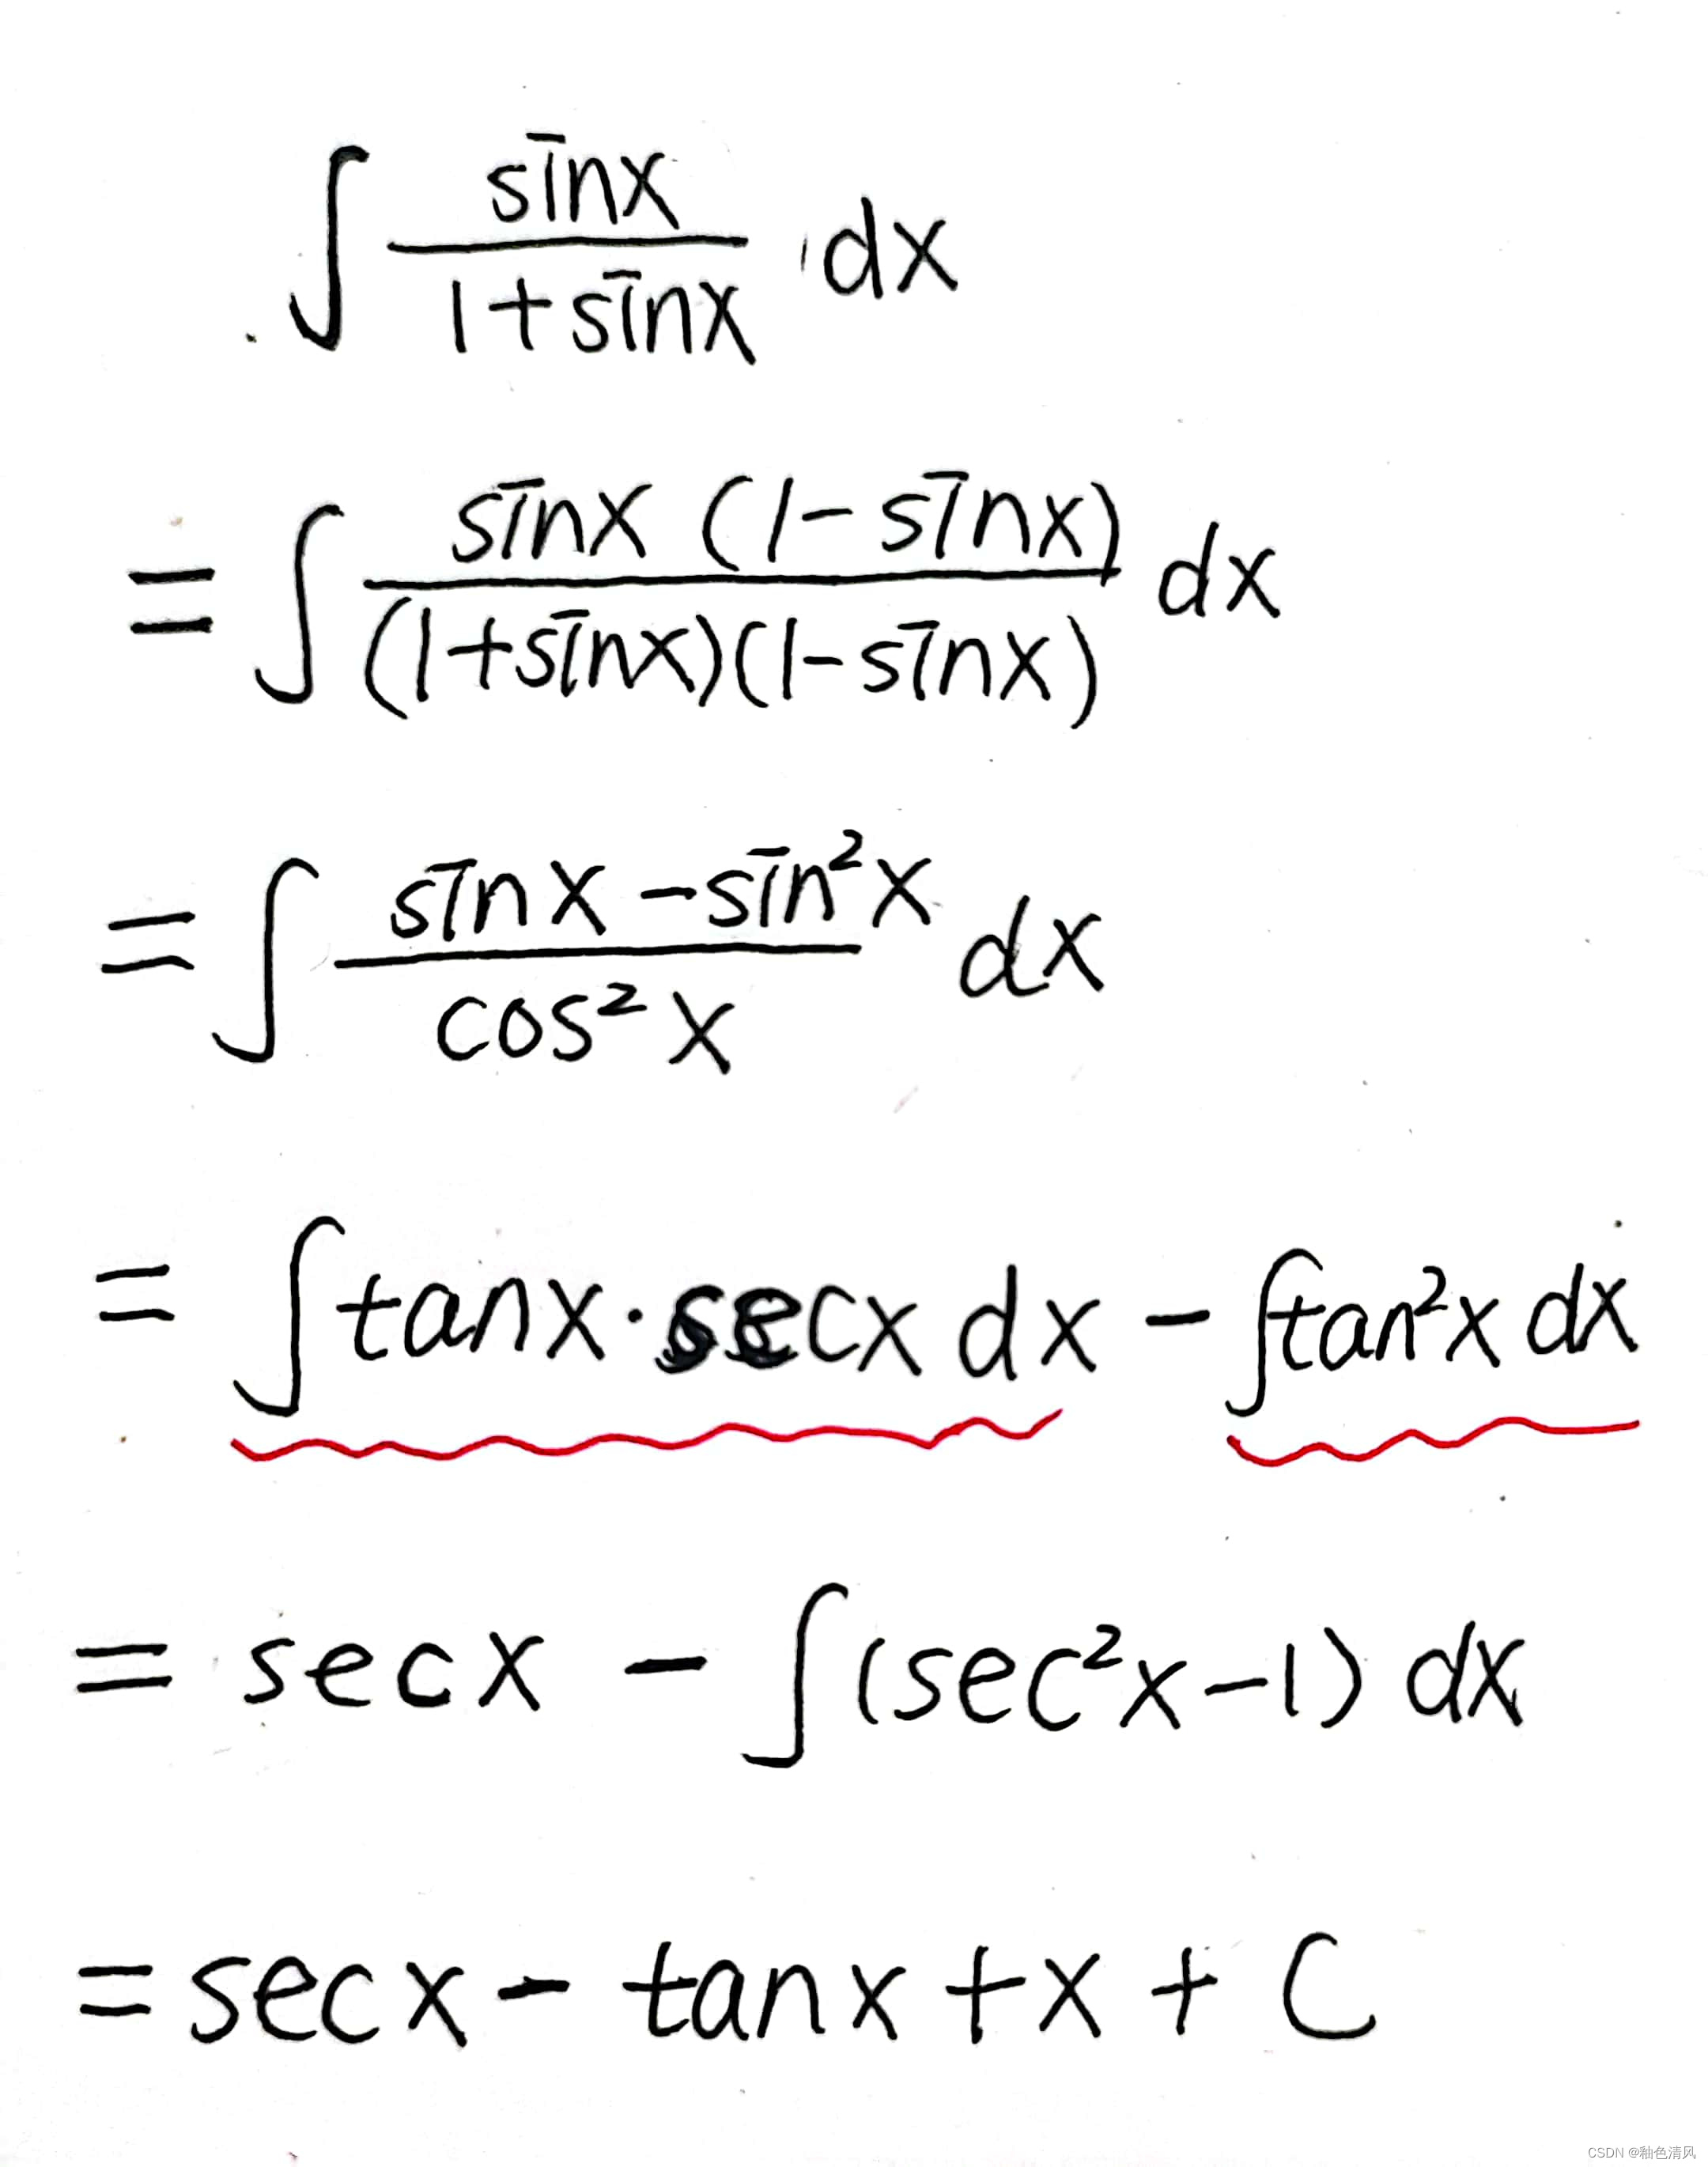 ∫ sinx / (1+sinx) dx
= ∫ sinx (1-sinx) / ((1+sinx)(1-sinx)) dx
= ∫ (sinx - sin²x) / cos²x dx
= ∫ tanx·secx dx - ∫tan²x dx
= secx - ∫(sec²x-1) dx
= secx - tanx + x + C
CSDN @釉色清风